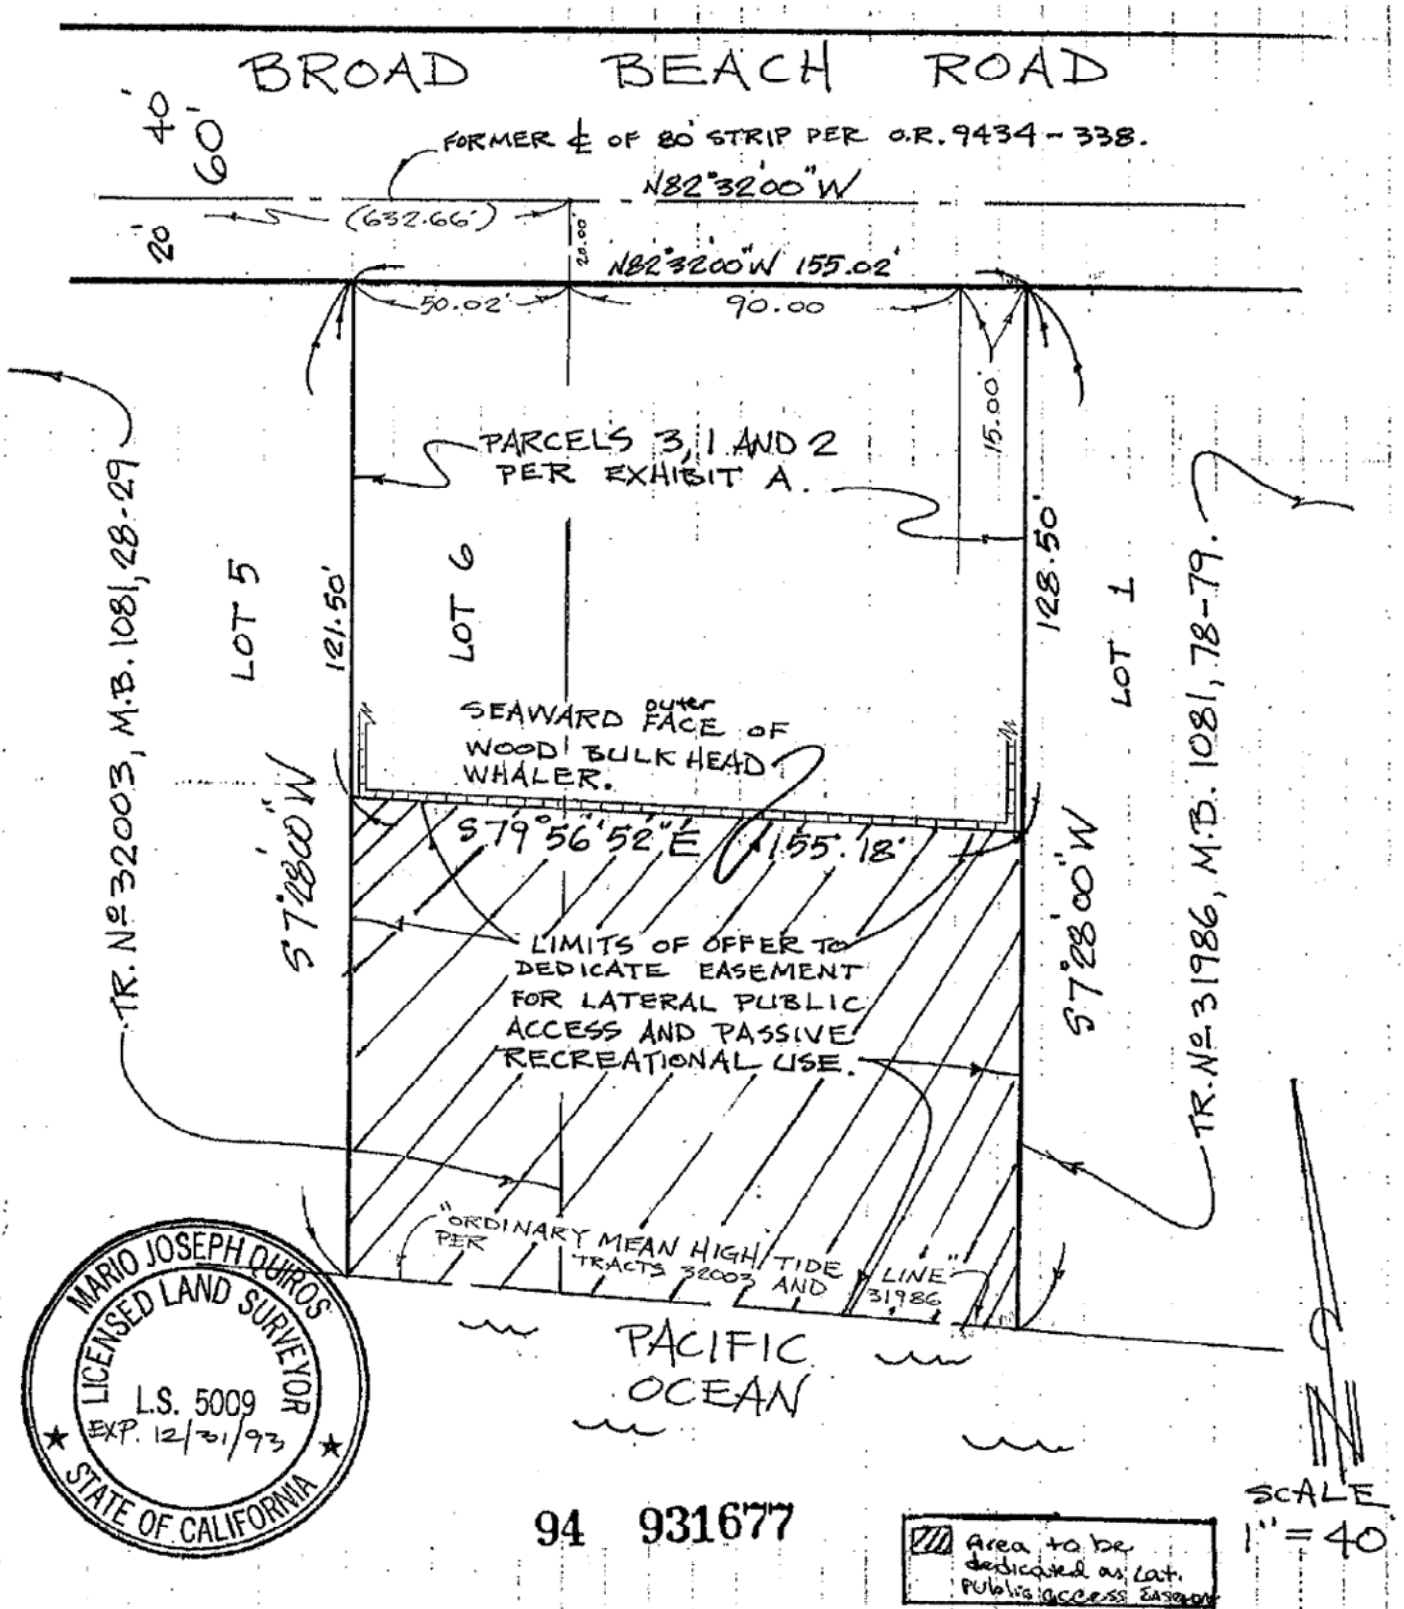 BROAD BEACH ROAD
40'
60'
FORMER ℄ OF 80' STRIP PER O.R. 9434-338.
N82°32'00"W
(632.66')
20'
20.00'
N82°32'00"W 155.02'
50.02'
90.00
15.00'
PARCELS 3, 1 AND 2
PER EXHIBIT A.
TR. Nº 32003, M.B. 1081, 28-29
LOT 5
121.50'
LOT 6
128.50'
LOT 1
TR. Nº 31986, M.B. 1081, 78-79.
SEAWARD outer FACE OF
WOOD BULKHEAD
WHALER.
S7°28'00"W
S79°56'52"E 155.18'
S7°28'00"W
LIMITS OF OFFER TO
DEDICATE EASEMENT
FOR LATERAL PUBLIC
ACCESS AND PASSIVE
RECREATIONAL USE.
"ORDINARY MEAN HIGH TIDE LINE"
PER TRACTS 32003 AND 31986
PACIFIC
OCEAN
MARIO JOSEPH QUIROS
LICENSED LAND SURVEYOR
L.S. 5009
EXP. 12/31/93
STATE OF CALIFORNIA
N
SCALE
1" = 40'
94 931677
Area to be
dedicated as Lat.
Public access Easement